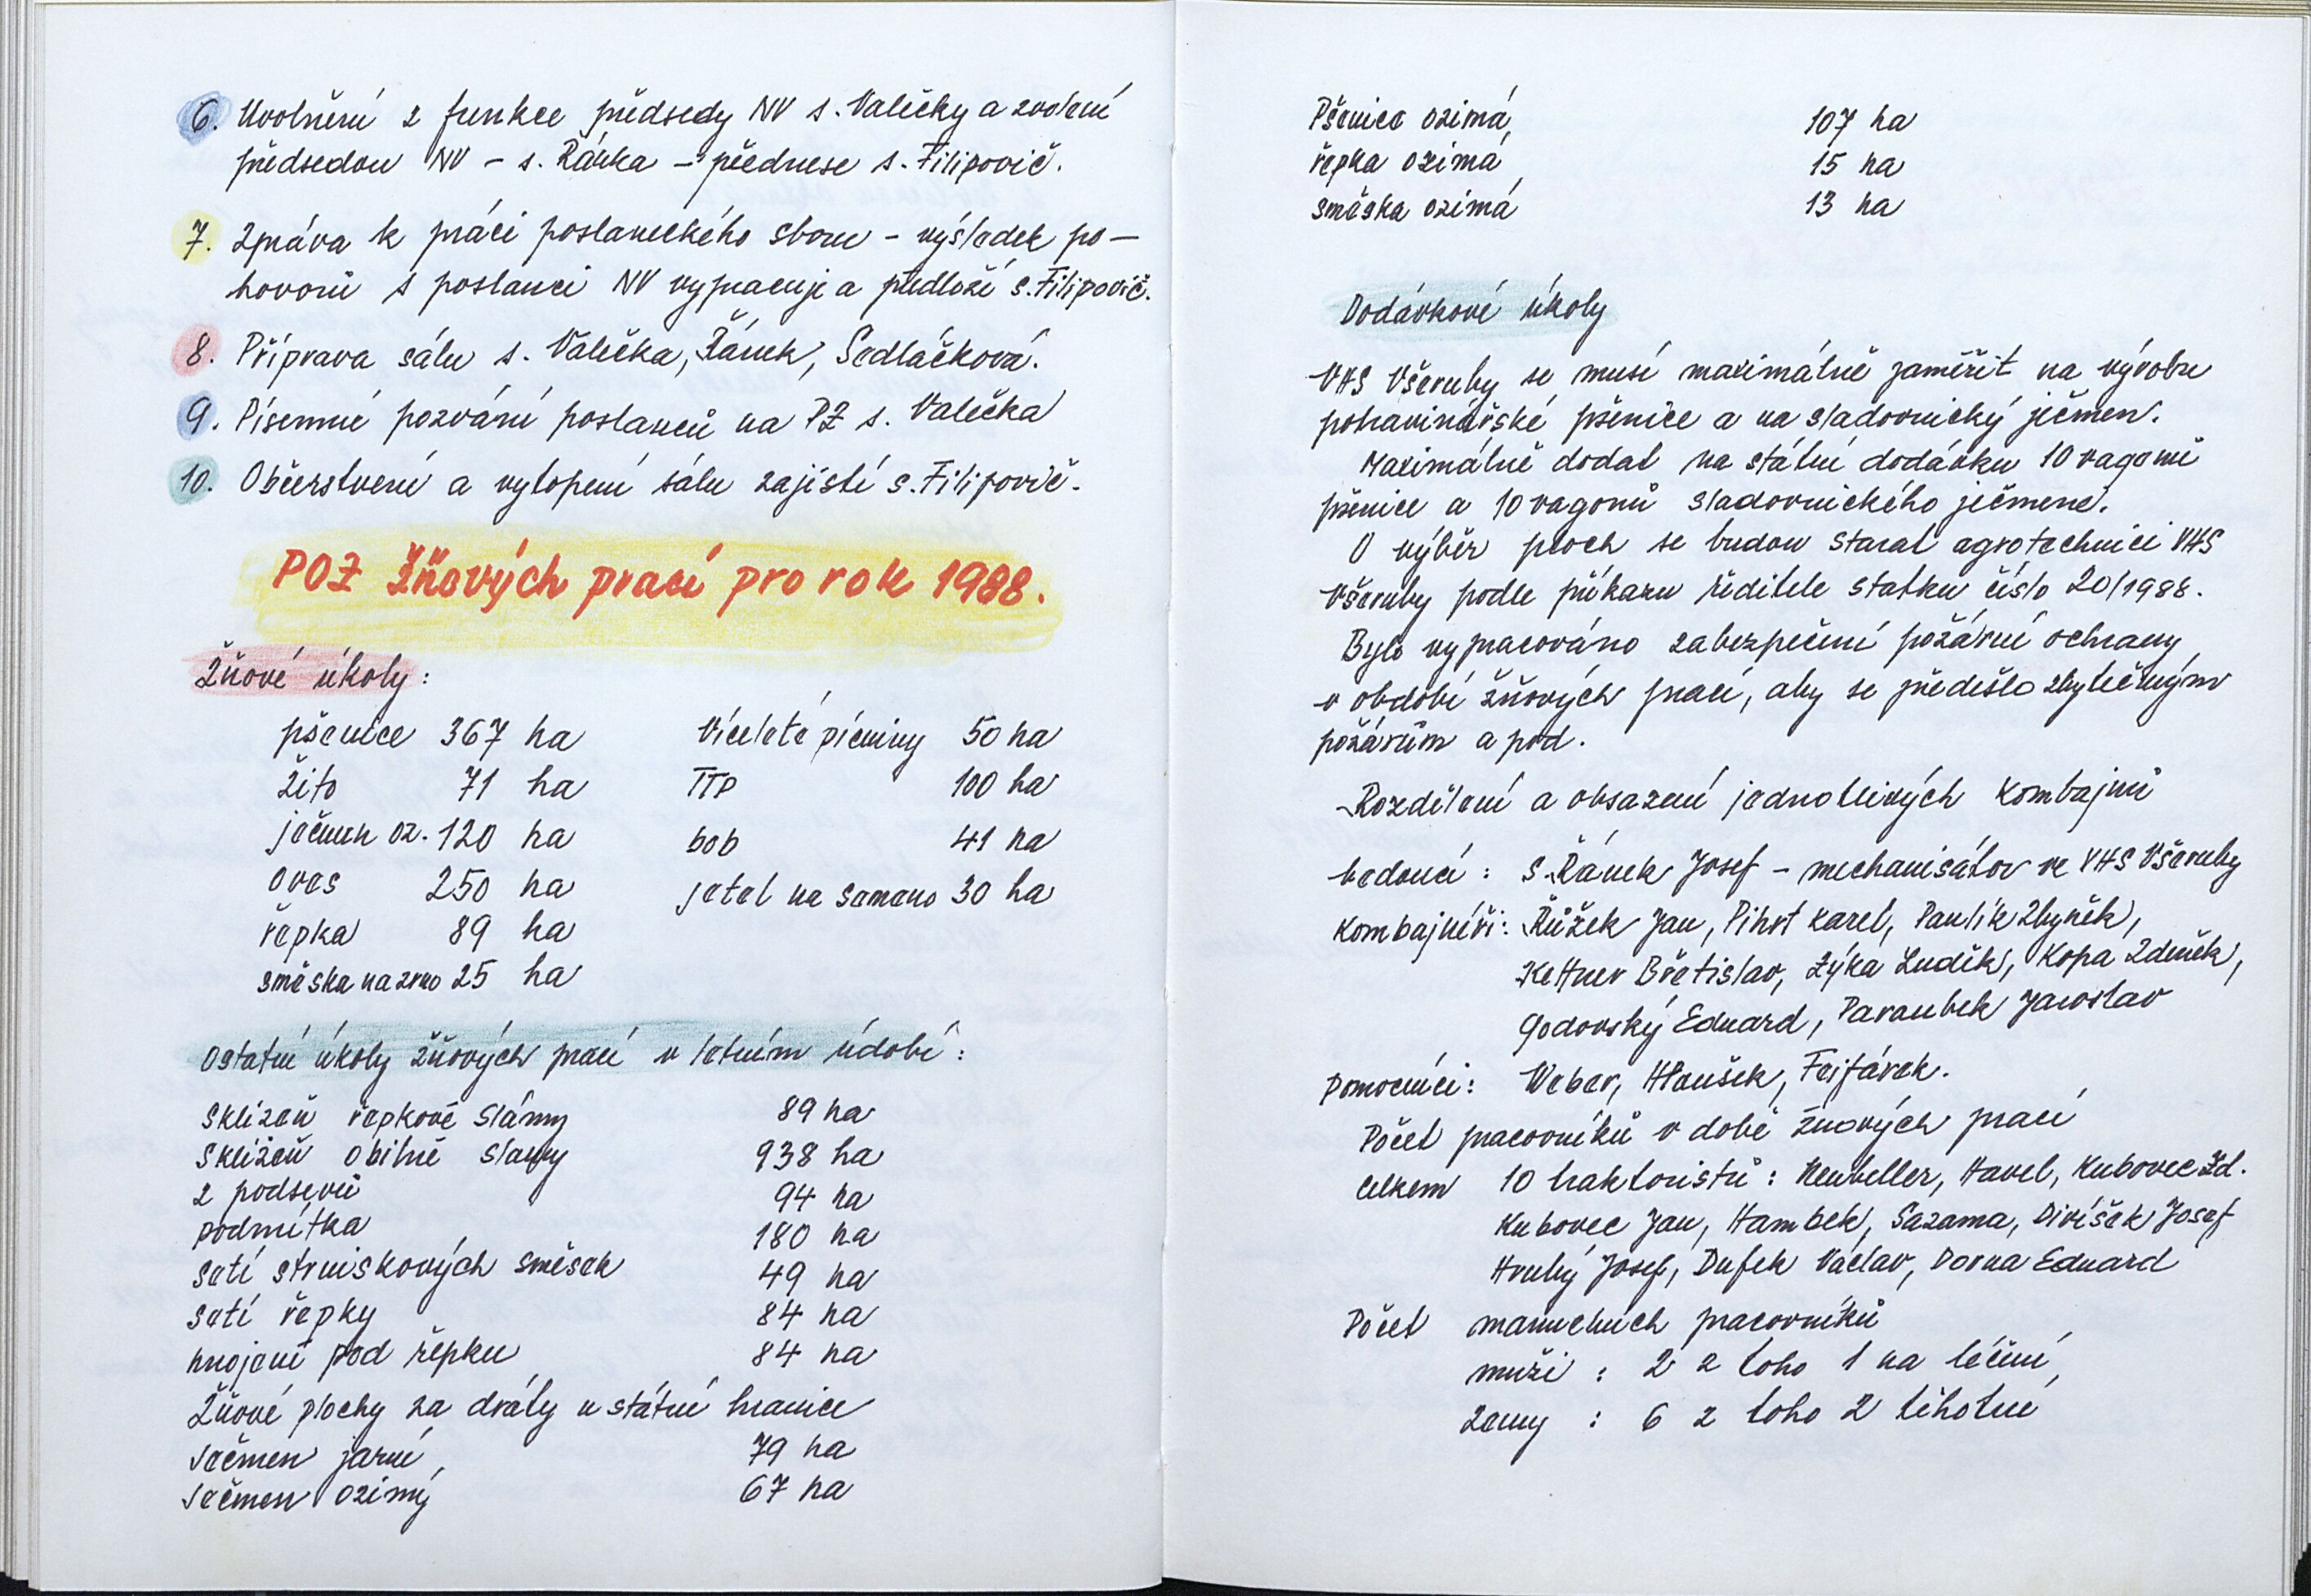 6. Uvolnění z funkce předsedy NV s. Valečky a zvolení
předsedou NV – s. Řánka – přednese s. Filipovič.
7. Zpráva k práci poslaneckého sboru – výsledek po–
hovorů s poslanci NV vypracuje a předloží s. Filipovič.
8. Příprava sálu s. Valečka, Řánek, Sedláčková.
9. Písemné pozvání poslanců na PZ s. Valečka
10. Občerstvení a vytopení sálu zajistí s. Filipovič.
POZ žňových prací pro rok 1988.
Žňové úkoly:
pšenice 367 ha víceleté pícniny 50 ha
žito 71 ha TTP 100 ha
ječmen oz. 120 ha bob 41 ha
oves 250 ha jetel na semeno 30 ha
řepka 89 ha
směska na zrno 25 ha
Ostatní úkoly žňových prací v letním údobí:
Sklizeň řepkové slámy 89 ha
Sklizeň obilné slámy 938 ha
z podsevů 94 ha
podmítka 180 ha
setí strniskových směsek 49 ha
setí řepky 84 ha
hnojení pod řepku 84 ha
Žňové plochy za dráty u státní hranice
Ječmen jarní 79 ha
Ječmen ozimý 67 ha
Pšenice ozimá 107 ha
řepka ozimá 15 ha
směska ozimá 13 ha
Dodávkové úkoly
VHS Všeruby se musí maximálně zaměřit na výrobu
potravinářské pšenice a na sladovnický ječmen.
Maximálně dodat na státní dodávku 10 vagonů
pšenice a 10 vagonů sladovnického ječmene.
O výběr ploch se budou starat agrotechnici VHS
Všeruby podle příkazu ředitele statku číslo 20/1988.
Bylo vypracováno zabezpečení požární ochrany
v období žňových prací, aby se předešlo zbytečným
požárům a pod.
Rozdělení a obsazení jednotlivých kombajnů
vedoucí: s. Řánek Josef – mechanisátor ve VHS Všeruby
Kombajnéři: Růžek Jan, Pihrt Karel, Pavlík Zbyněk,
Kettner Břetislav, Zýka Luděk, Kopa Zdeněk,
Godovský Eduard, Paroubek Jaroslav
Pomocníci: Weber, Hloušek, Fejfárek.
Počet pracovníků v době žňových prací
celkem 10 traktoristů: Neubeller, Havel, Kubovec Zd.
Kubovec Jan, Hambek, Sazama, Divíšek Josef
Hrubý Josef, Dufek Václav, Dorna Eduard
Počet manuelních pracovníků
muži : 2 z toho 1 na léčení
ženy : 6 z toho 2 těhotné